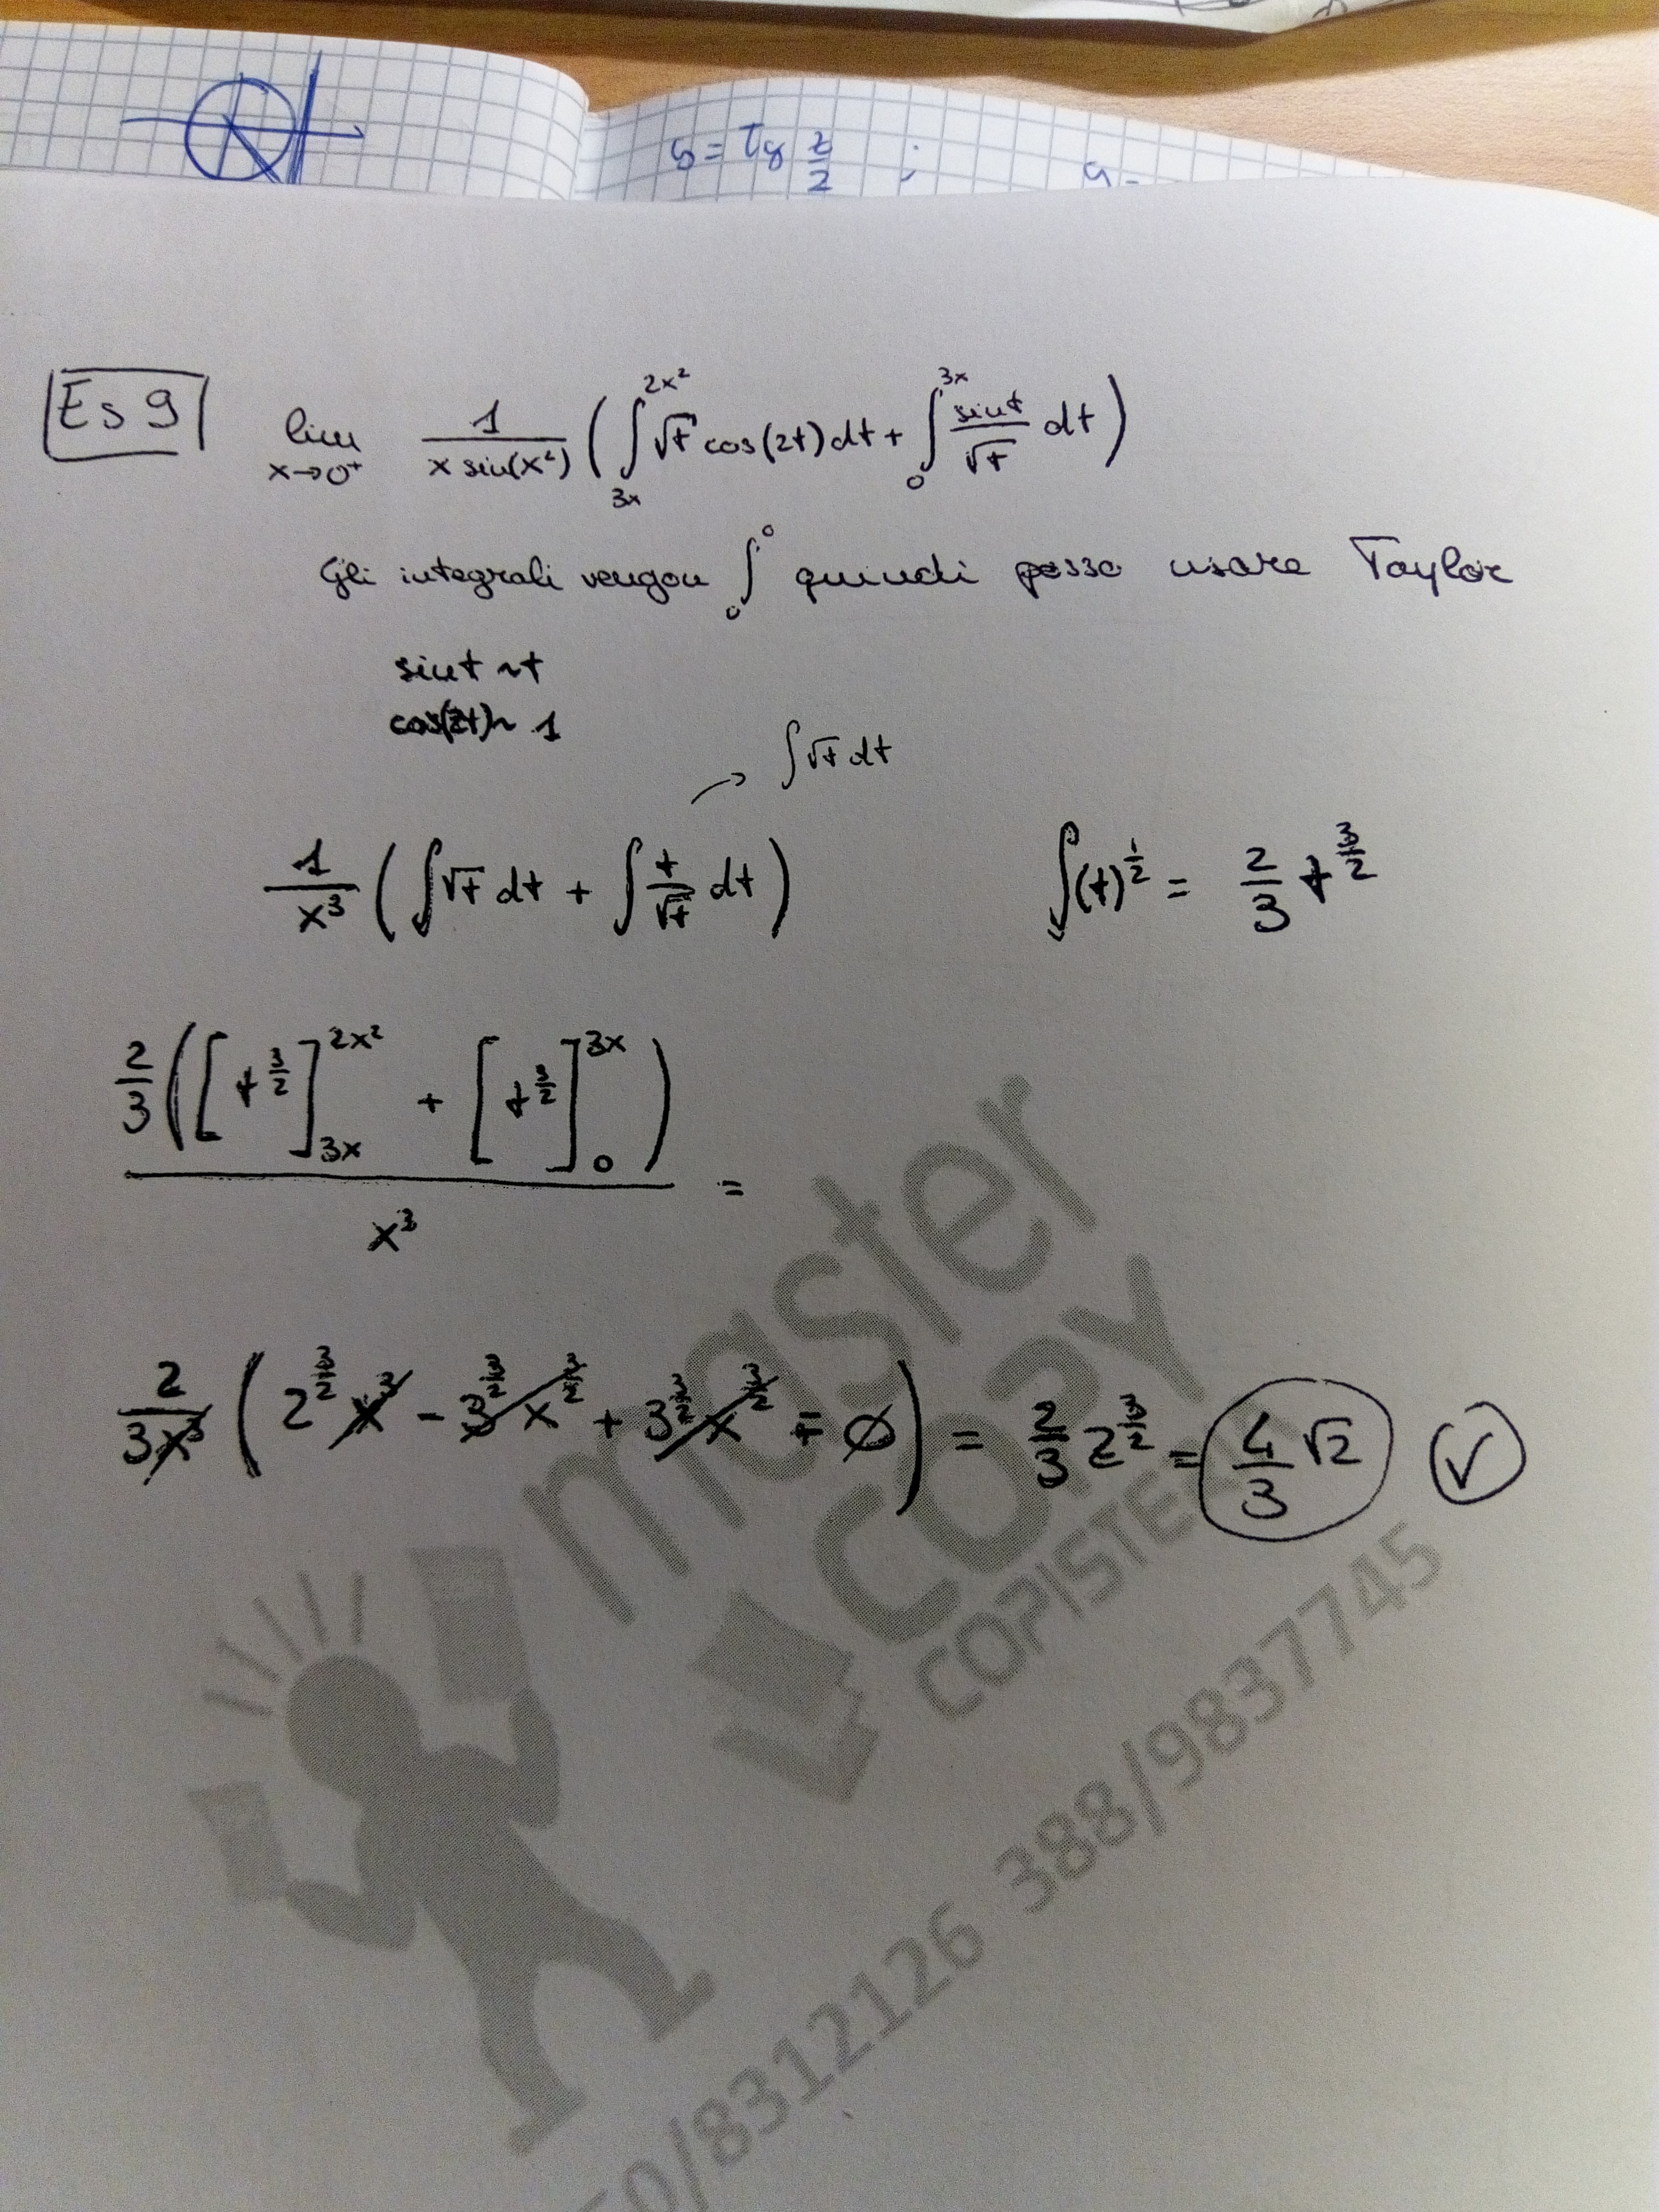 y = tg z/2 ; y =
Es 9
lim x→0⁺ 1/(x sin(x²)) ( ∫_{3x}^{2x²} √t cos(2t) dt + ∫_0^{3x} sin t/√t dt )
Gli integrali vengon ∫_0^0 quindi posso usare Taylor
sin t ~ t
cos(2t) ~ 1
→ ∫ √t dt
1/x³ ( ∫ √t dt + ∫ t/√t dt ) ∫ (t)^{1/2} = 2/3 t^{3/2}
2/3 ( [t^{3/2}]_{3x}^{2x²} + [t^{3/2}]_0^{3x} ) / x³ =
2/(3x³) ( 2^{3/2} x³ - 3^{3/2} x^{3/2} + 3^{3/2} x^{3/2} + 0 ) = 2/3 2^{3/2} = 4/3 √2 ✓
master
copy
COPISTERIA
0/8312126 388/9837745